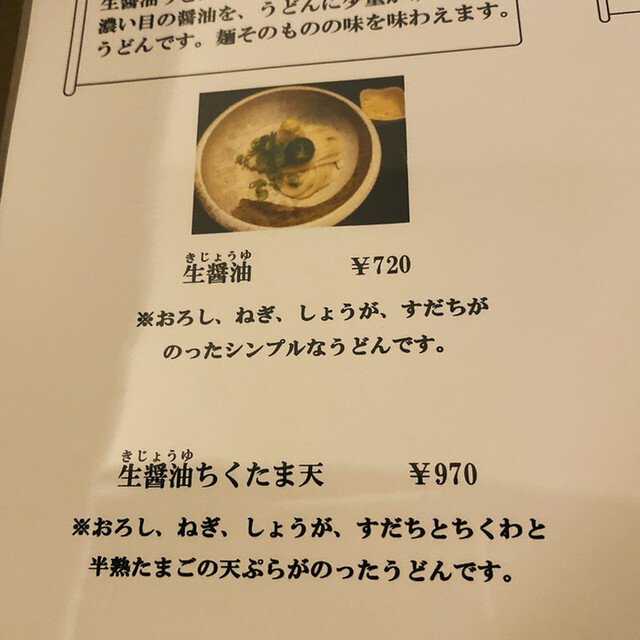 生醤油
濃い目の醤油を、うどんに少量
うどんです。麺そのものの味を味わえます。
きじょうゆ
生醤油 ￥720
※おろし、ねぎ、しょうが、すだちが
のったシンプルなうどんです。
きじょうゆ
生醤油ちくたま天 ￥970
※おろし、ねぎ、しょうが、すだちとちくわと
半熟たまごの天ぷらがのったうどんです。